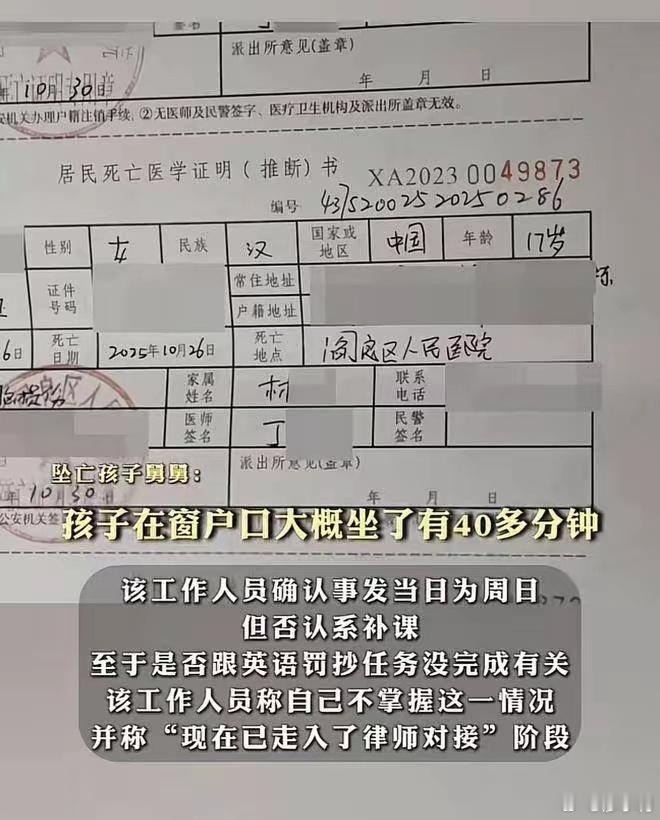 派出所意见(盖章)
年 月 日
10月30日
安机关办理户籍注销手续,②无医师及民警签字、医疗卫生机构及派出所盖章无效。
居民死亡医学证明(推断)书
XA2023 0049873
编号 4375200252025 0286
性别 女 民族 汉 国家或地区 中国 年龄 17岁
证件号码
常住地址
户籍地址
6日 死亡日期 2025年10月26日 死亡地点 阎良区人民医院
家属姓名 林
联系电话
医师签名 丁
民警签名
派出所意见(盖章)
年 月 日
年10月30日
公安机关
坠亡孩子舅舅:
孩子在窗户口大概坐了有40多分钟
该工作人员确认事发当日为周日
但否认系补课
至于是否跟英语罚抄任务没完成有关
该工作人员称自己不掌握这一情况
并称“现在已走入了律师对接”阶段